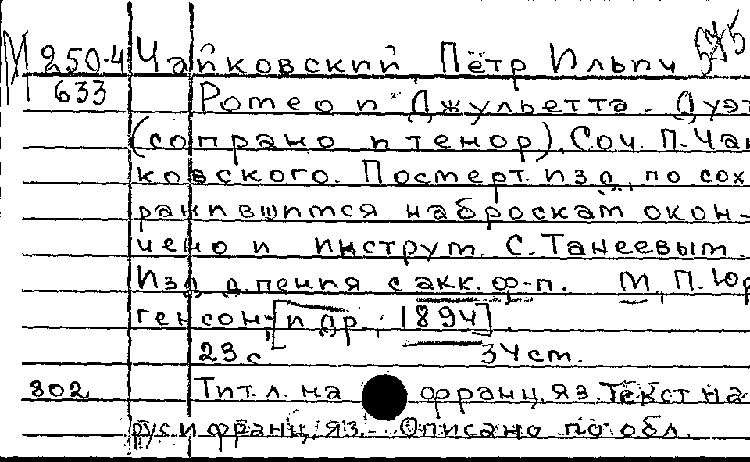 М 250-4 Чайковский, Пётр Ильич 575
633 Ромео и Джульетта. Дуэт
(сопрано и тенор). Соч. П. Чай-
ковского. Посмерт. изд. по сох-
ранившимся наброскам окон-
чено и инструм. С. Танеевым.
Изд. д. пения с акк. ф-п. М., П. Юр-
генсон; [и др.; 1894]
23 с. 34 см.
802 Тит. л. на франц. яз. Текст на
рус. и франц. яз. - Описано по обл.